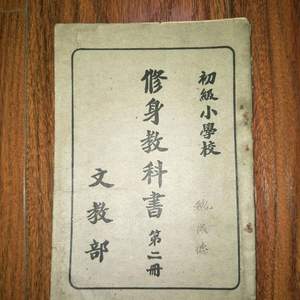 初級小學校
修身教科書 第二冊
文教部